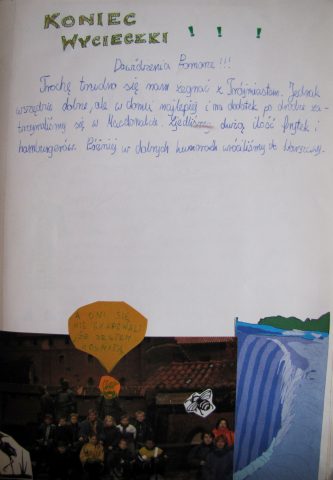 KONIEC
WYCIECZKI ! ! ! !
Dowidzenia Pomorze!!!
Trochę trudno się nam żegnać z Trójmiastem. Jednak
wszędzie dobrze, ale w domu najlepiej i na dodatek po drodze za-
trzymaliśmy się w Macdonaldzie. Zjedliśmy dużą ilość frytek i
hamburgerów. Później w dobrych humorach wróciliśmy do Warszawy.
A ONI SIĘ
NIE SKAPOWALI
ŻE JESTEM